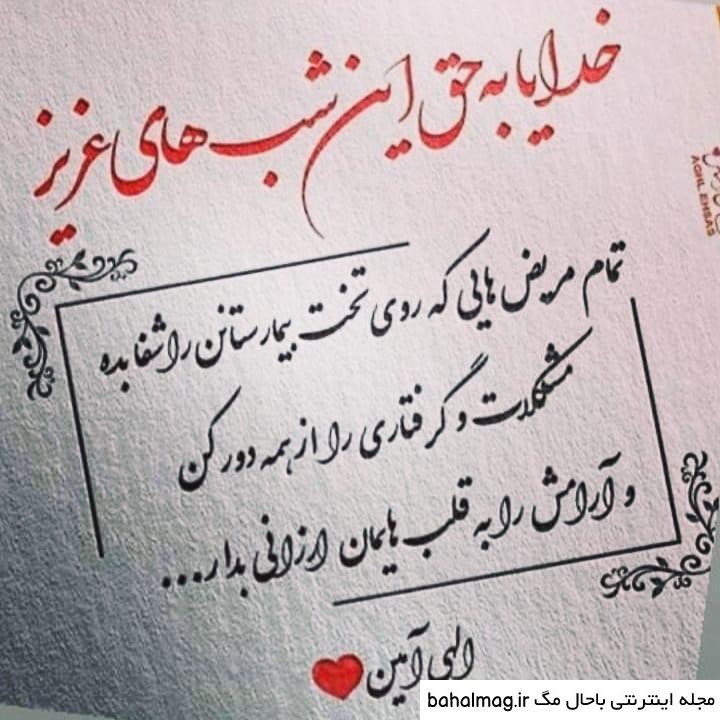 خدایا به حق این شب های عزیز
تمام مریض هایی که روی تخت بیمارستانن را شفا بده
مشکلات و گرفتاری را از همه دور کن
و آرامش را به قلب هایمان ارزانی بدار...
الهی آمین
AGHL EHSAS
مجله اینترنتی باحال مگ bahalmag.ir